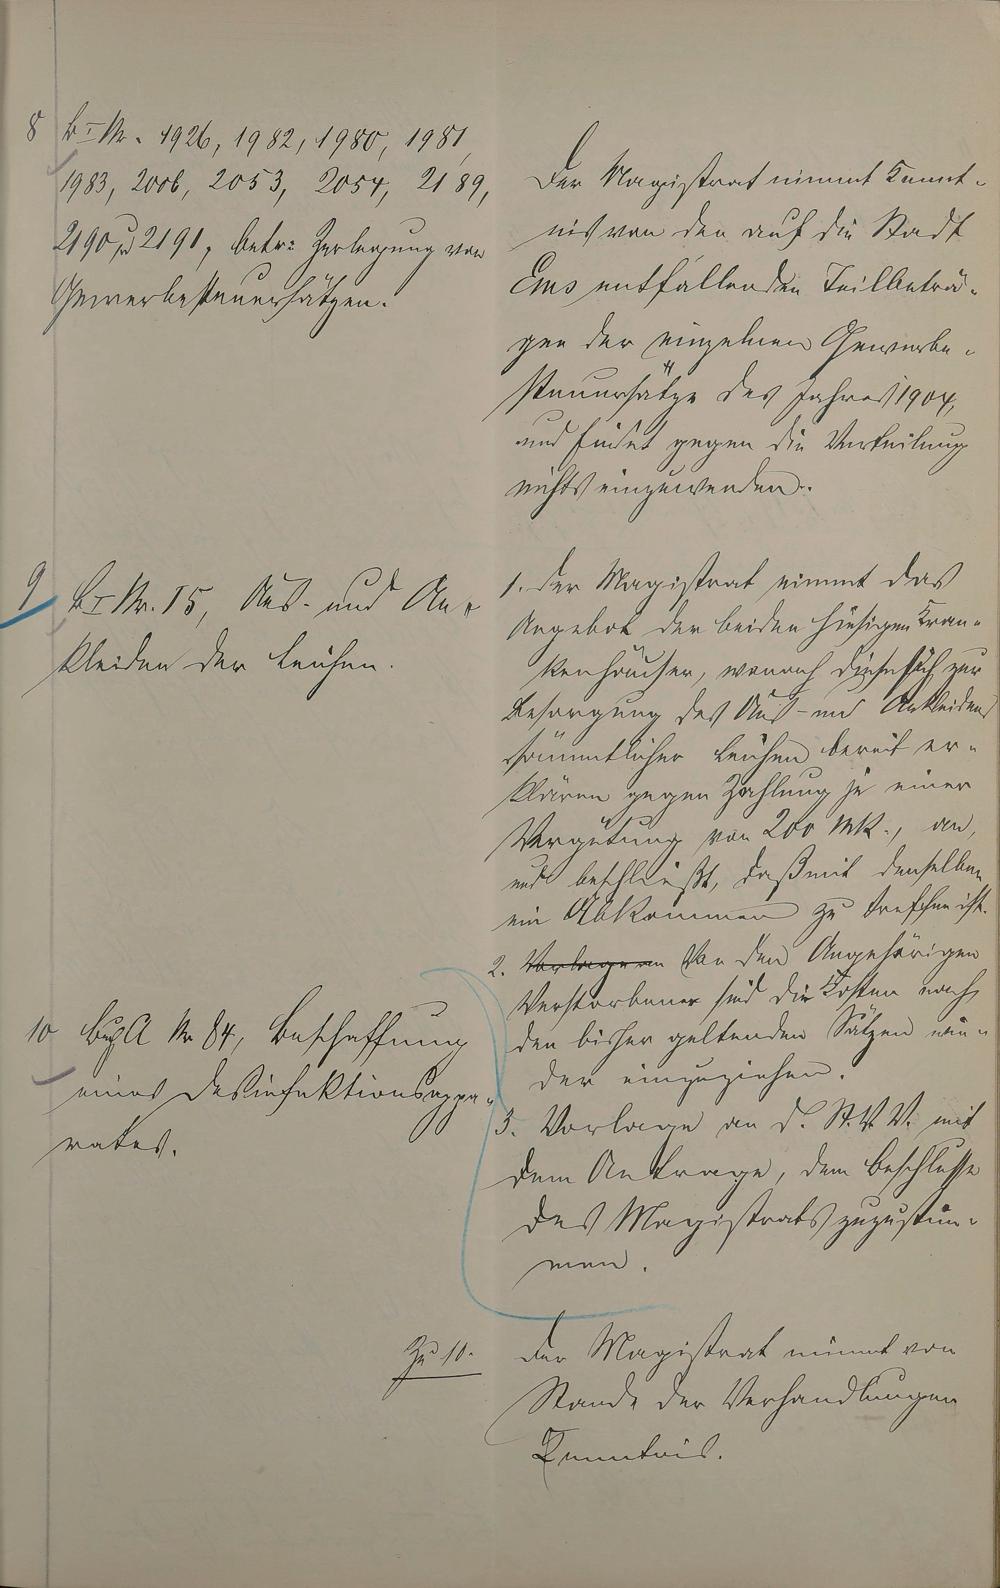 8 B I Nr. 1926, 1982, 1980, 1981,
1983, 2006, 2053, 2054, 2189,
2190 u 2191, betr: Zerlegung von
Gewerbesteuersätzen.
Der Magistrat nimmt Kennt-
nis von den auf die Stadt
Ems entfallenden Teilbeträ-
gen der einzelnen Gewerbe-
steuersätze des Jahres 1904,
und findet gegen die Verteilung
nichts einzuwenden.
9 B I Nr. 15, Aus- und An-
kleiden der Leichen.
1. Der Magistrat nimmt das
Angebot der beiden hiesigen Kran-
kenhäuser, wonach diese sich zur
Besorgung des Aus- und Ankleidens
sämmtlicher Leichen bereit er-
klären gegen Zahlung je einer
Vergütung von 200 Mk., an,
und beschließt, daß mit denselben
ein Abkommen zu treffen ist.
2. Von den Angehörigen
Verstorbener sind die Kosten nach
den bisher geltenden Sätzen wie-
der einzuziehen.
3. Vorlage an d. St. V. V. mit
dem Antrage, dem Beschlusse
des Magistrats zuzustim-
men.
10 A Nr 84, Beschaffung
eines Desinfektionsappa-
rates.
Zu 10.
Der Magistrat nimmt von
Stande der Verhandlungen
Kenntnis.